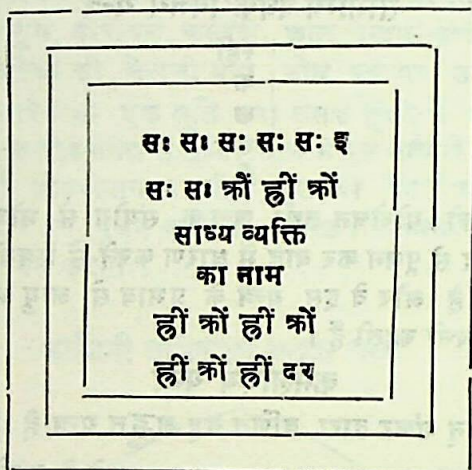 सः सः सः सः सः इ
सः सः क्रौं ह्रीं क्रों
साध्य व्यक्ति
का नाम
ह्रीं क्रों ह्रीं क्रों
ह्रीं क्रों ह्रीं दर